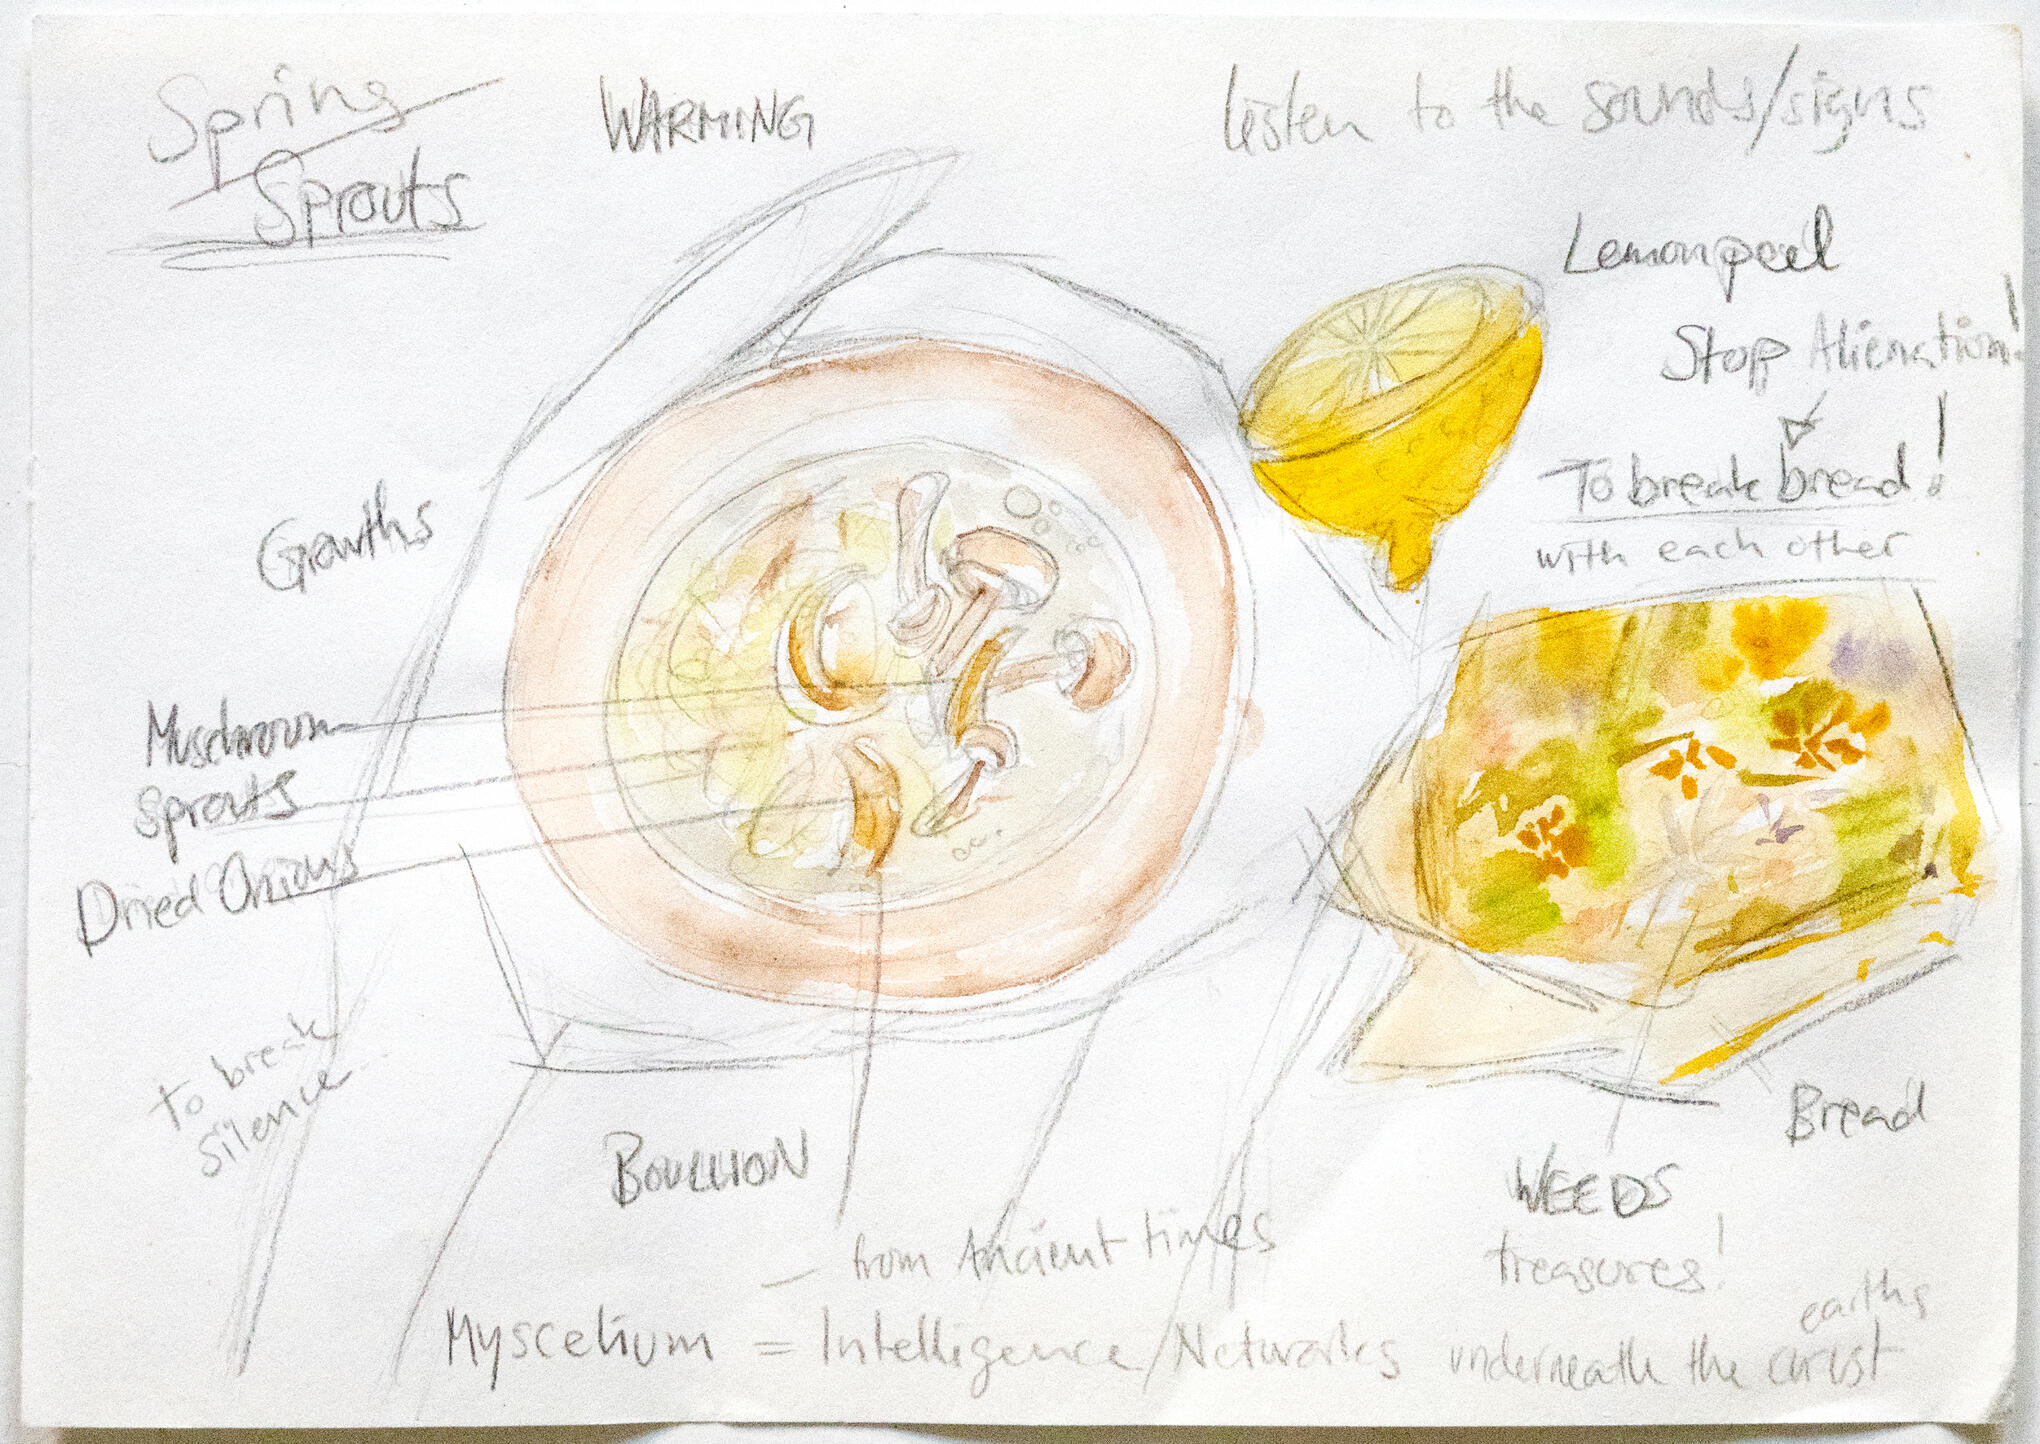 Spring
Sprouts
WARMING
listen to the sounds/signs
Lemonpeel
Stop Alienation!
To break bread!
with each other
Growths
Muschroom
Sprouts
Dried Onions
to break
silence
BOULLION
– from Ancient times
Bread
WEEDS
treasures!
earths
Myscelium = Intelligence/Networks underneath the crust